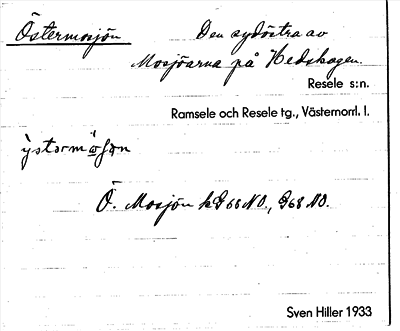 Östermosjön
Den sydöstra av
Mosjöarna på Hedskogen.
Resele s:n.
Ramsele och Resele tg., Västernorrl. l.
Ö. Mosjön k G 68 NO., G 68 NO.
Sven Hiller 1933